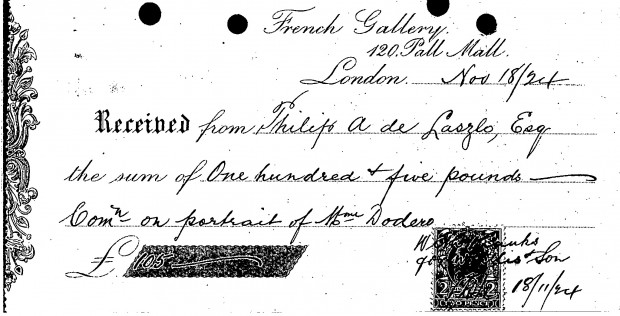 French Gallery.
120. Pall Mall.
London. Nov 18/24
Received from Philip A de Laszlo, Esq
the sum of One hundred & five pounds
Comn on portrait of Mme Dodero
£ 105
& Son
18/11/24
2 2
TWO PENCE